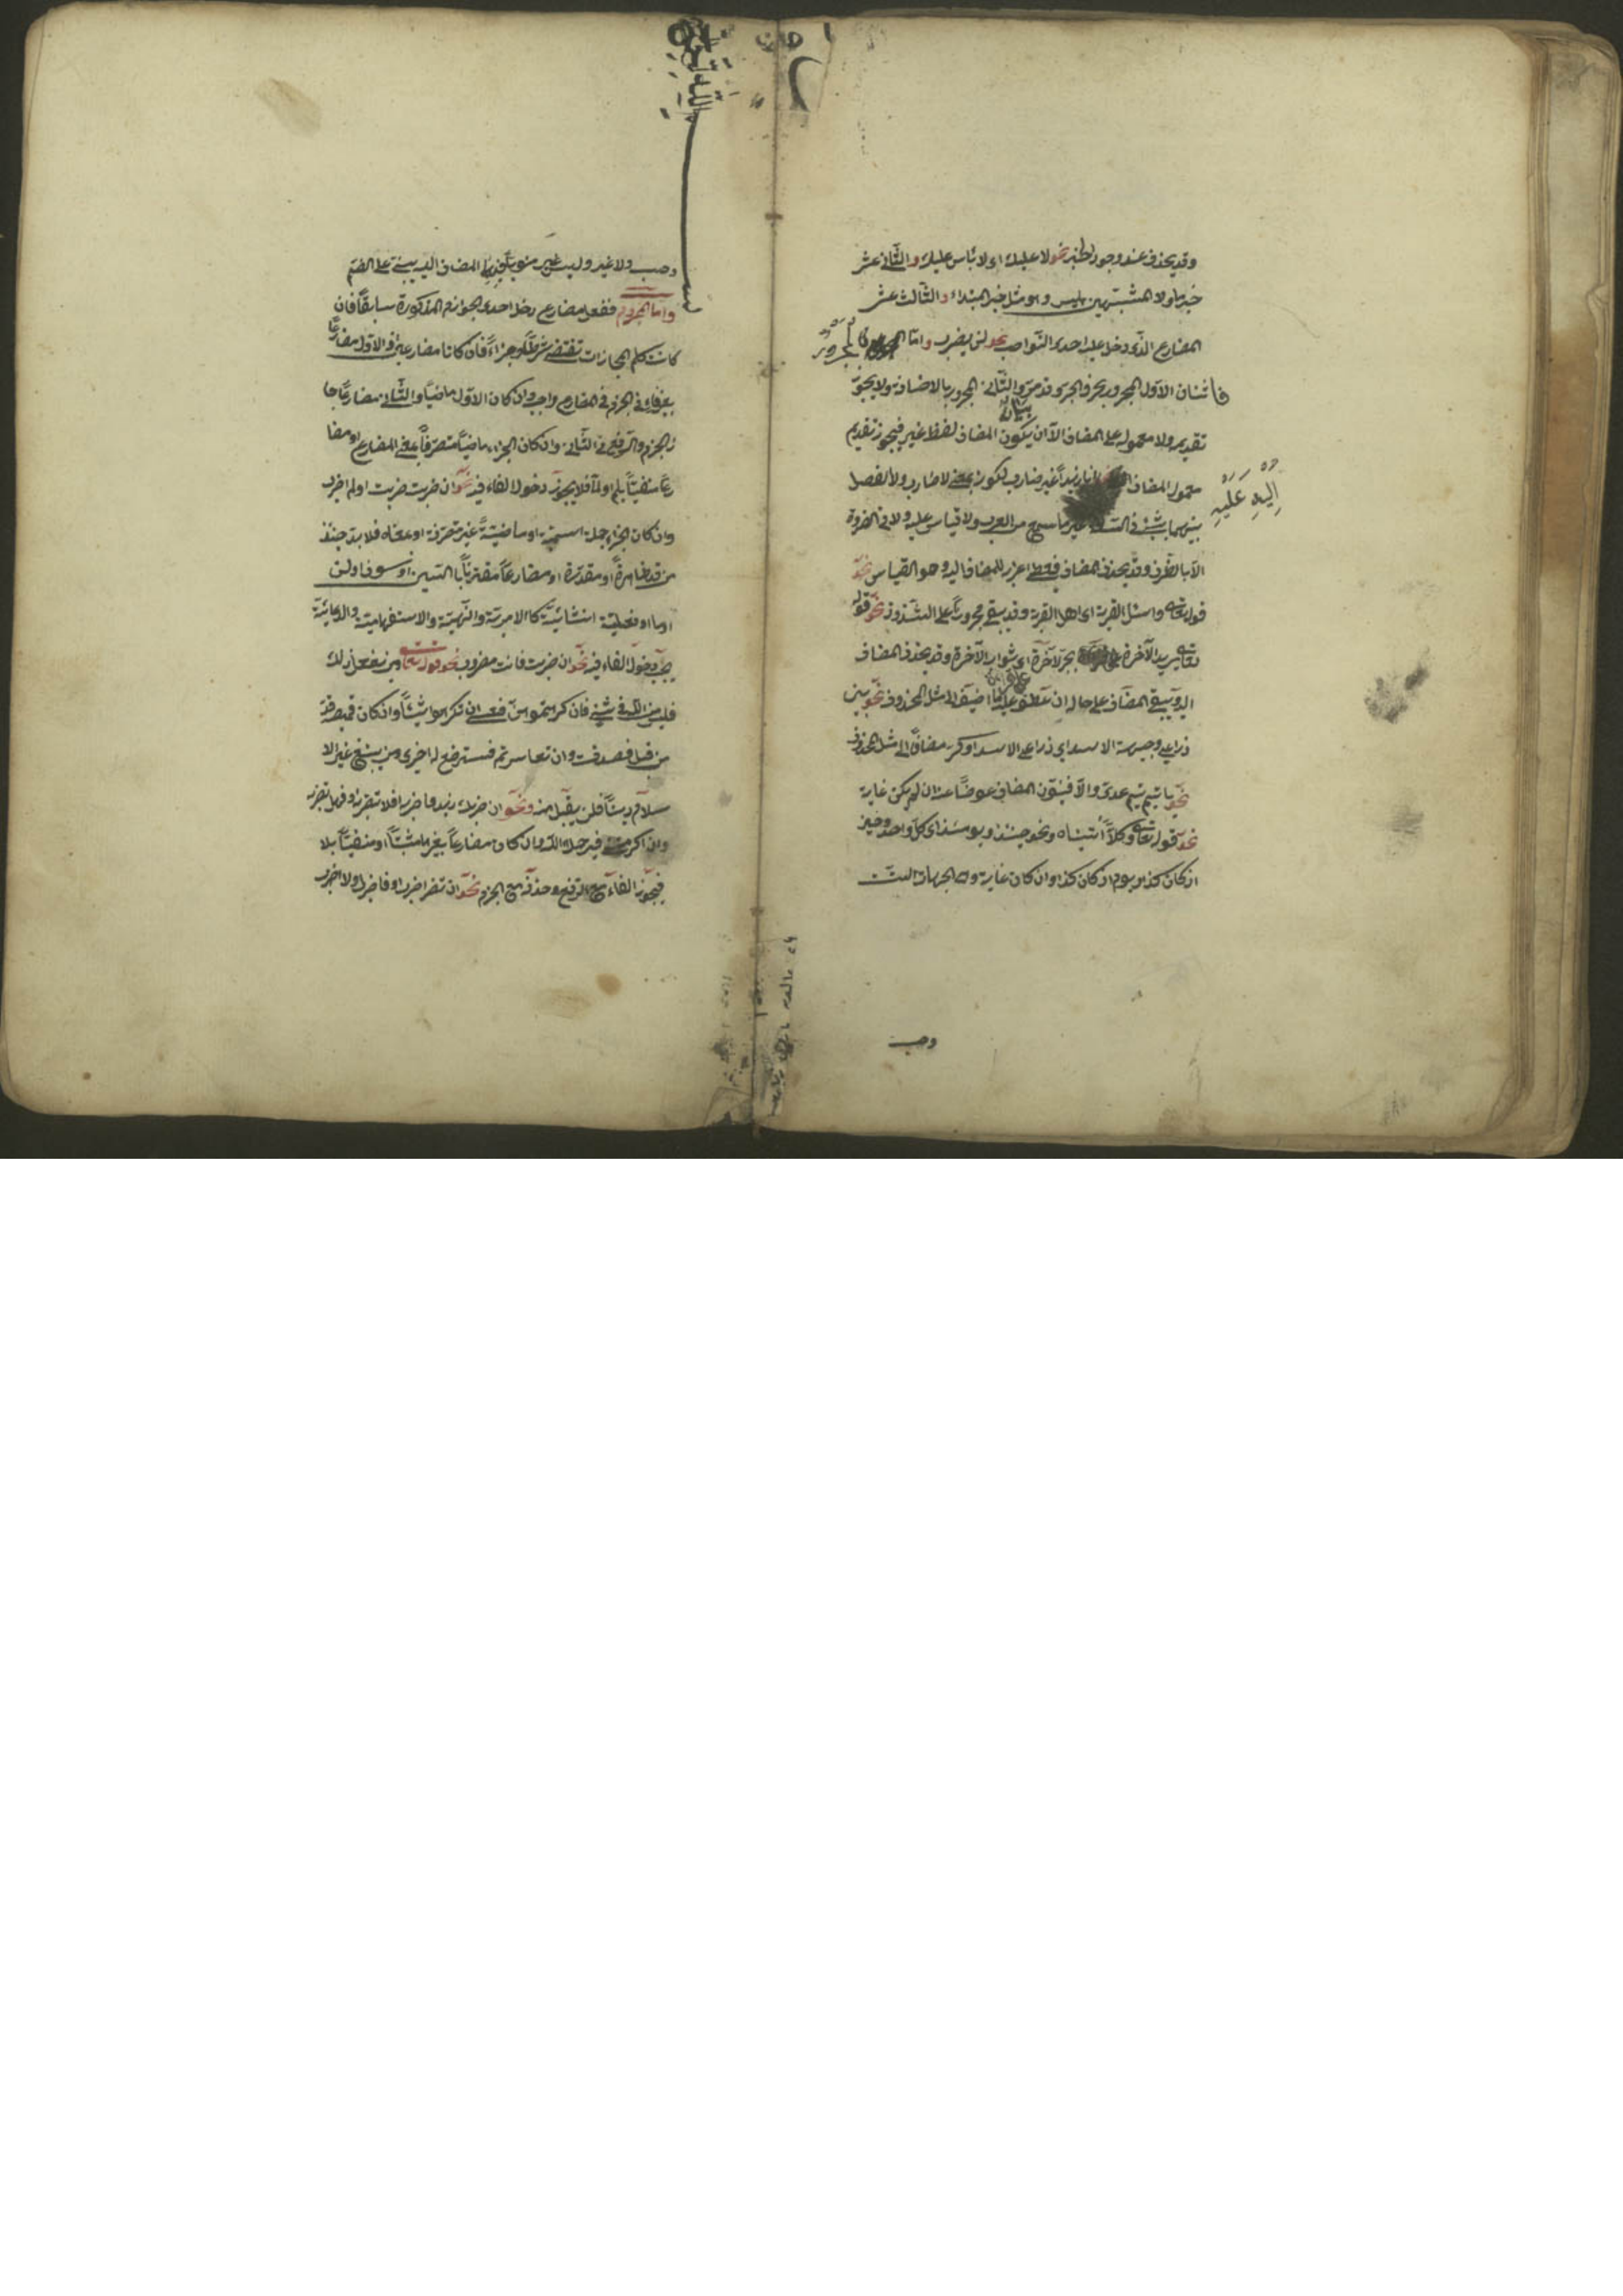 وقد يحذف عند وجود الخبر نحو لا عليك اى لا بأس عليك والثانى عشر
خبر ما ولا المشبهتين بليس وهو مثل خبر المبتداء والثالث عشر
المضارع الذى دخل عليه احدى النواصب نحو لن يضرب واما المجرور
فاثنان الاول المجرور بحرف الجر وقد مر والثانى المجرور بالاضافة ولا يجوز
تقديمه ولا معموله على المضاف الا ان يكون المضاف لفظ غير فيجوز تقديم
معمول المضاف انا زيدا غير ضارب لكونه بمعنى لا ضارب ولا الفصل
بينهما بشئ فى السعة غير ما سمع من العرب ولا قياس عليه ولا فى الضرورة
الا بالظرف وقد يحذف المضاف فيعطى اعرابه للمضاف اليه وهو القياس نحو
قوله تعالى واسئل القرية اى اهل القرية وقد يبقى مجرورا على الشذوذ نحو قوله
تعالى يريد الآخرة بجر الآخرة اى ثواب الآخرة وقد يحذف المضاف
اليه ويبقى المضاف على حاله ان عطف عليه ما اضيف الى مثل المحذوف نحو بين
ذراعى وجبهة الاسد اى ذراعى الاسد او كرر مضافا الى مثل المحذوف
نحو يا تيم تيم عدى والا فينون المضاف عوضا عنه ان لم يكن غاية
نحو قوله تعالى وكلا آتيناه ونحو حينئذ ويومئذ اى كل واحد وحين
اذ كان كذا ويوم اذ كان كذا وان كان غاية وهى الجهات الست
وحسب
اليه عليه
وحسب ولا غير وليس غير منويا فيها المضاف اليه يبنى على الضم
واما المجزوم ففعل مضارع دخل احدى الجوازم المذكورة سابقا فان
كانت كلم المجازات تقتضى شرطا وجزاء فان كانا مضارعين او الاول مضارعا
بغير فاء فى الجزم فى المضارع واجب وان كان الاول ماضيا والثانى مضارعا جا
ز الجزم والرفع فى الثانى وان كان الجزاء ماضيا متصرفا بمعنى المضارع او مضا
رعا منفيا بلم او لما فلا يجوز دخول الفاء فيه نحو ان ضربت ضربت او لم اضرب
وان كان الجزاء جملة اسمية او ماضية غير متصرفة او بمعناه فلا بد حينئذ
من قد ظاهرة او مقدرة او مضارعا مقترنا بالسين او سوف او لن
او ما او فعلية انشائية كالامرية والنهية والاستفهامية والدعائية
يجب دخول الفاء فيه نحو ان ضربت فانت مضروب نحو قوله تعالى ومن يفعل ذلك
فليس من الله فى شئ فان كرهتموهن فعسى ان تكرهوا شيئا وان كان قميصه قد
من قبل فصدقت وان تعاسرتم فسترضع له اخرى ومن يبتغ غير الا
سلام دينا فلن يقبل منه ونحو ان ضربك زيد فاضربه او فلا تضربه او فهل تضربه
وان اكرمتنى فيرحمك الله وان كان مضارعا بغيرها مثبتا او منفيا بلا
فيجوز الفاء مع الرفع وحذفه مع الجزم نحو ان تضر اضرب او فاضرب او لا اضرب